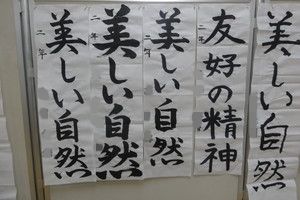 美しい自然
二年
美しい自然
二年
美しい自然
二年
友好の精神
二年
美しい自然